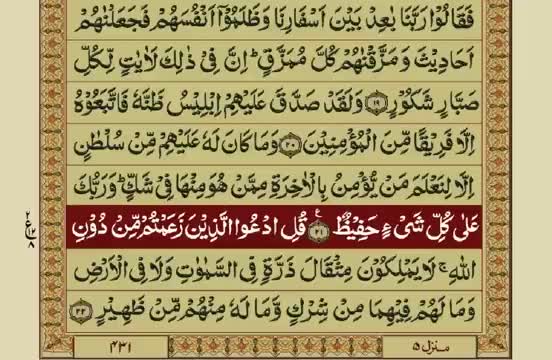 فَقَالُوۡا رَبَّنَا بٰعِدۡ بَيۡنَ اَسۡفَارِنَا وَظَلَمُوۡۤا اَنۡفُسَهُمۡ فَجَعَلۡنٰهُمۡ
اَحَادِيۡثَ وَمَزَّقۡنٰهُمۡ كُلَّ مُمَزَّقٍ ؕ اِنَّ فِىۡ ذٰ لِكَ لَاٰيٰتٍ لِّكُلِّ
صَبَّارٍ شَكُوۡرٍ ﴿۱۹﴾ وَلَقَدۡ صَدَّقَ عَلَيۡهِمۡ اِبۡلِيۡسُ ظَنَّهٗ فَاتَّبَعُوۡهُ
اِلَّا فَرِيۡقًا مِّنَ الۡمُؤۡمِنِيۡنَ ﴿۲۰﴾ وَمَا كَانَ لَهٗ عَلَيۡهِمۡ مِّنۡ سُلۡطٰنٍ
اِلَّا لِنَعۡلَمَ مَنۡ يُّؤۡمِنُ بِالۡاٰخِرَةِ مِمَّنۡ هُوَ مِنۡهَا فِىۡ شَكٍّ ؕ وَرَبُّكَ
عَلٰى كُلِّ شَىۡءٍ حَفِيۡظٌ ﴿۲۱﴾ ع قُلِ ادۡعُوا الَّذِيۡنَ زَعَمۡتُمۡ مِّنۡ دُوۡنِ
اللّٰهِ ۚ لَا يَمۡلِكُوۡنَ مِثۡقَالَ ذَرَّةٍ فِى السَّمٰوٰتِ وَلَا فِى الۡاَرۡضِ
وَمَا لَهُمۡ فِيۡهِمَا مِنۡ شِرۡكٍ وَّمَا لَهٗ مِنۡهُمۡ مِّنۡ ظَهِيۡرٍ ﴿۲۲﴾
۲
ع ۱۲
۸
منزل ۵
۴۳۱